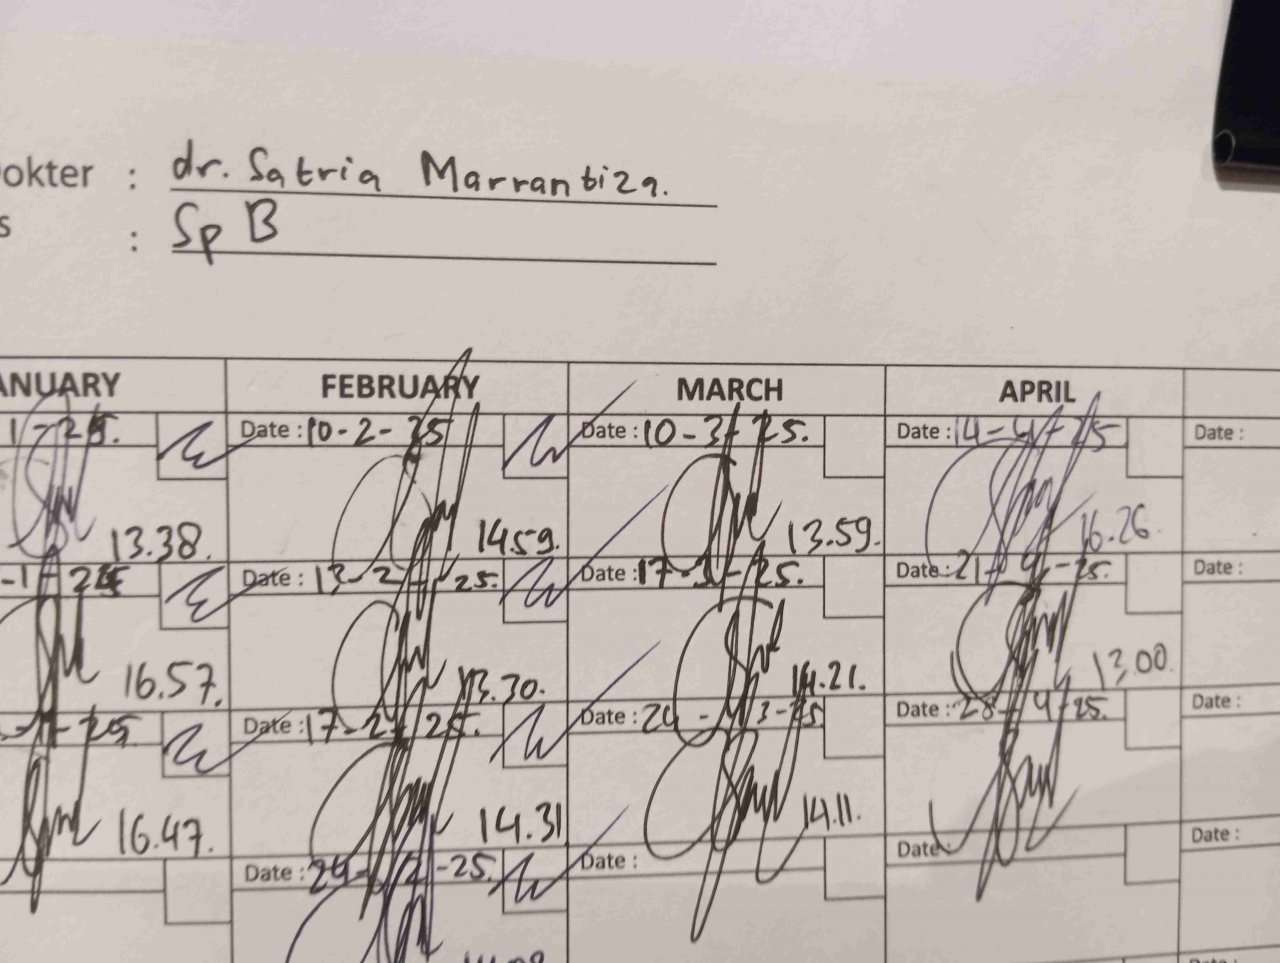 okter : dr. Satria Marrantiza.
s : Sp B
ANUARY FEBRUARY MARCH APRIL
Date : 10-2-25 Date : 10-3-25. Date : 14-4-25 Date :
13.38. 14.59. 13.59. 16.26.
Date : 13-2-25. Date : 17-3-25. Date : 21-4-25. Date :
16.57. 13.30. 14.21. 13.00.
Date : 17-2-25. Date : 24-3-25 Date : 28-4-25. Date :
16.47. 14.31 14.11.
Date : 24-2-25. Date : Date : Date :